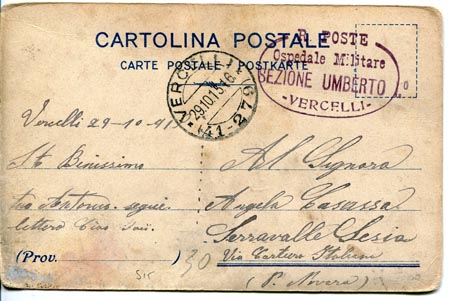 CARTOLINA POSTALE
CARTE POSTALE - POSTKARTE
R. POSTE
Ospedale Militare
SEZIONE UMBERTO I°
- VERCELLI -
29.10.15 16
(41-276)
Vercelli 29-10-
Sto Benissimo
Antonio segue
lettera Ciao
Al Signora
Angela
Serravalle Sesia
Via Cartiera Italiana
(P. Novara)
(Prov.
)
30